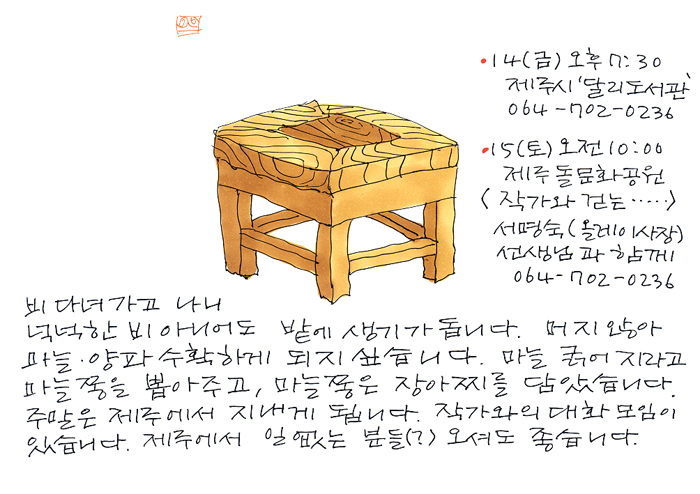 •14(금) 오후 7:30
제주시 '달리도서관'
064-702-0236
•15(토) 오전 10:00
제주돌문화공원
<작가와 걷는·····>
서명숙(올레이사장)
선생님과 함께
064-702-0236
비 다녀가고 나니
넉넉한 비 아니어도 밭에 생기가 돕니다. 머지않아
마늘·양파 수확하게 되지 싶습니다. 마늘 굵어지라고
마늘쫑을 뽑아주고, 마늘쫑은 장아찌를 담았습니다.
주말은 제주에서 지내게 됩니다. 작가와의 대화모임이
있습니다. 제주에서 일없는 분들(?) 오셔도 좋습니다.